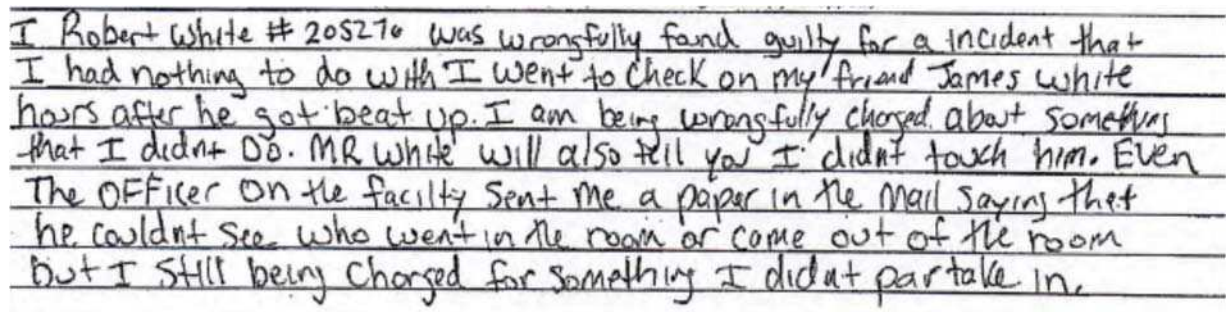 I Robert White # 205276 was wrongfully fand guilty for a incident that
I had nothing to do with I went to check on my friend James white
hours after he got beat up. I am being wrongfully charged about something
that I didnt DO. MR white will also tell you I didnt touch him. Even
The OFFicer on the facilty sent me a paper in the mail saying that
he couldnt see who went in the room or come out of the room
but I still being charged for something I didnt partake in.